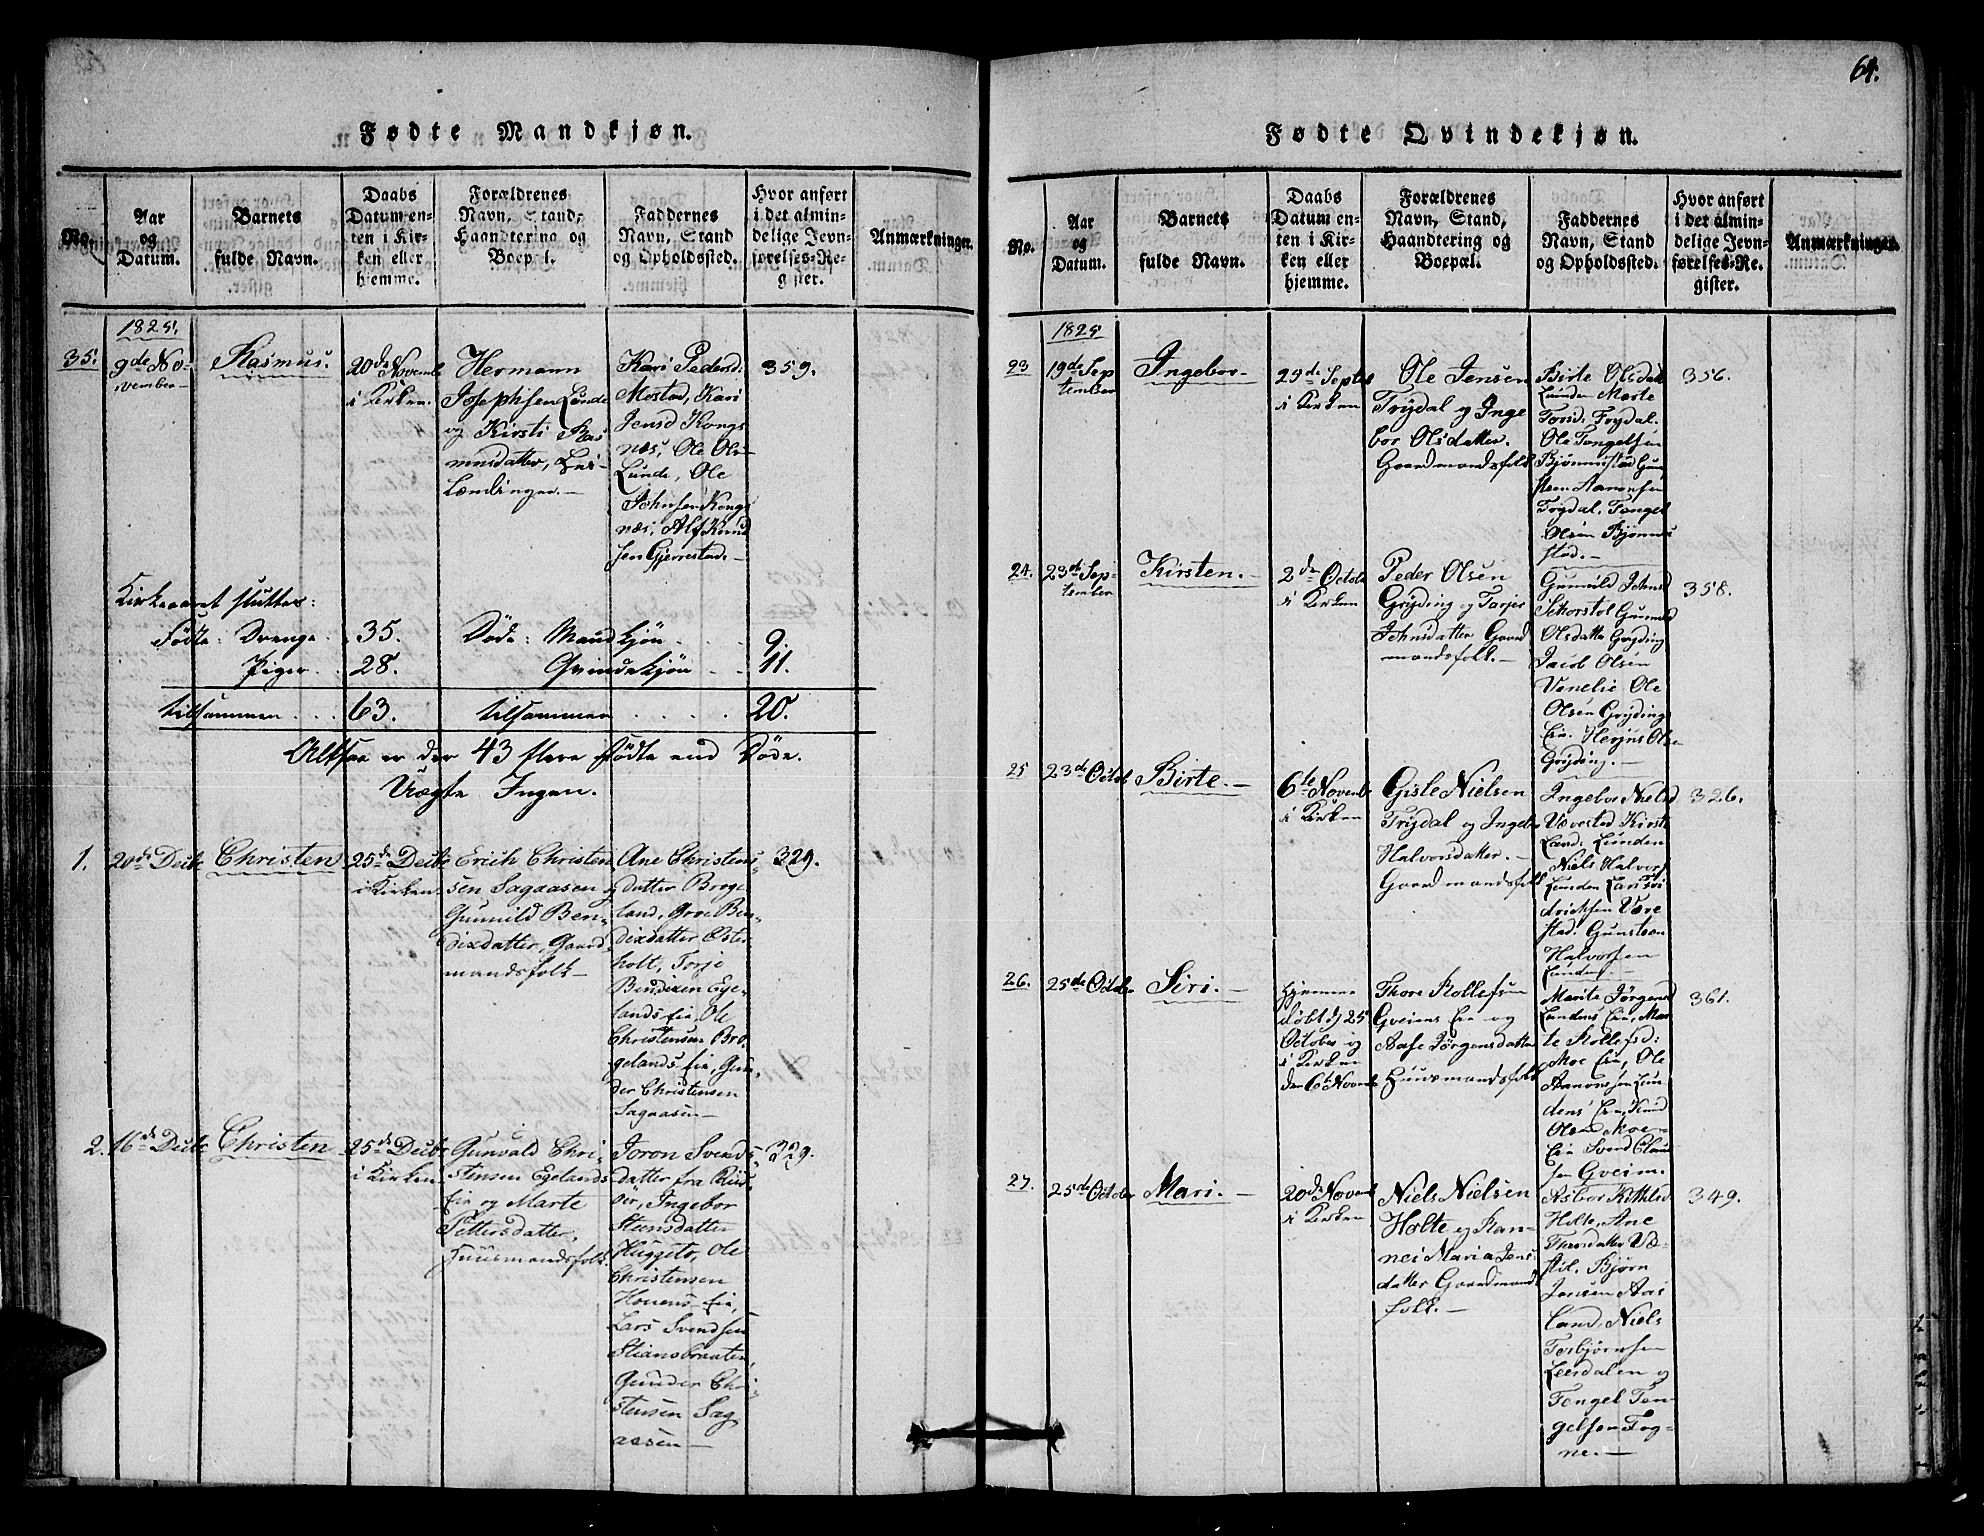 64.
Fødte Mandkjøn.
No.
Aar
og
Datum.
Barnets
fulde Navn.
Daabs
Datum en-
ten i Kir-
ken eller
hjemme.
Forældrenes
Navn, Stand,
Haandtering og
Boepæl.
Faddernes
Navn, Stand
og Opholdssted.
Hvor anført
i det almin-
delige Jevn-
førelses-Re-
gister.
Anmærkninger.
1825.
35.
9de No-
vember
Rasmus.
20de Novemb
i Kirken.
Hermann
Josephsen Lunde
og Kirsti Ras
musdatter, Lei-
lændinger.
Kari Pedersd:
Mostad, Kari
Jensd Kongs
næs, Ole Ols
Lunde, Ole
Johnsen Kongs
næs, Alf Knud
sen Gjerrestad.
359.
Kirkeaaret slutter:
Fødte: Drenge . 35. Døde: Mandkjøn . . 9.
Piger . . 28. Qvindekjøn . . 11.
tilsammen . . . 63. tilsammen . . . . . 20.
Altsaa er der 43 flere fødte end Døde.
Uægte Ingen.
1.
20de Decbr
Christen
25de Decbr
i Kirken
Erich Christen
sen Sagaasen og
Gunnild Ben-
dixdatter, Gaard
mandsfolk
Ane Christens
datter Broge
land, Groe Ben-
dixdatter Øster
holt, Torje
Bendixen Ege-
lands Eie, Ole
Christensen Bro-
gelands Eie, Gun-
der Christensen
Sagaasen
329.
2.
16de Decbr
Christen
25de Decbr
i Kirken
Gunvald Chri-
stensen Egelands
Eie og Marte
Pettersdatter,
Huusmandsfolk.
Joron Svends
datter fra Riis-
ør, Ingebor
Steensdatter
Huggeto, Ole
Christensen
Hovens Eie,
Lars Svendsen
Stiansbraaten,
Gunder Chri-
stensen Sag
aasen
329.
Fødte Qvindekjøn.
No.
Aar
og
Datum.
Barnets
fulde Navn.
Daabs
Datum en-
ten i Kir-
ken eller
hjemme.
Forældrenes
Navn, Stand,
Haandtering og
Boepæl.
Faddernes
Navn, Stand
og Opholdssted.
Hvor anført
i det almin-
delige Jevn-
førelses-Re-
gister.
Anmærkninger.
1825
23
19de Sep
tember
Ingebor
29de Septbr
i Kirken
Ole Jensen
Trydal og Inge
bor Olsdatter.
Gaardmandsfolk
Birte Olsdatt
Lunden Marte
Torsd. Trydal.
Ole Tengelsen
Bjønnustad Gun
steen Aanonsen
Trydal. Tengel
Olsen Bjønnu
stad.
356.
24.
23de Sep-
tember
Kirsten.
2de Octob
i Kirken
Peder Olsen
Gryding og Tarjer
Johnsdatter Gaard
mandsfolk.
Gunnild Johnsd
Schorstøl Gunnild
Olsdatter Gryding
Jacob Olsen
Venelie Ole
Olsen Grydings
Eie. Herjus Olsen
Gryding.
358.
25
23de Octob
Birte.
6te Novemb
i Kirken
Gisle Nielsen
Trydal og Ingebor
Halvorsdatter.
Gaardmandsfolk
Ingebor Nielsd
Vævestad Kirsti
Land. Lunden
Niels Halvors
Lunden Lars Fri
drichsen Væve
stad. Gunsteen
Halvorsen
Lunden.
326.
26.
25de Octobr
Siri.
Hjemme
døbt d 25
October og
i Kirken
den 6te Novemb
Thore Rollefsen
Gveiens Eie og
Aase Jørgensdatter
Huusmandsfolk
Marite Jørgensd
Lundens Eie, Mar
te Rollefsd:
Moe Eie, Ole
Aanonsen Lun
dens Eie, Knud
Olsen Moe
Eie Svend Clau
sen Gveim.
361.
27.
25de Octobr
Mari.
20de Novemb
i Kirken
Niels Nielsen
Holte og Ran-
nei Maria Jens
datter Gaardmands
folk.
Asbor Kittilsd
Holte, Ane
Thorsdatter Væ-
støl. Bjørn
Jansen Aas
land, Niels
Torbjørnsen
Leerdalen og
Tengel Ten
gelsen Fog-
ne.
349.